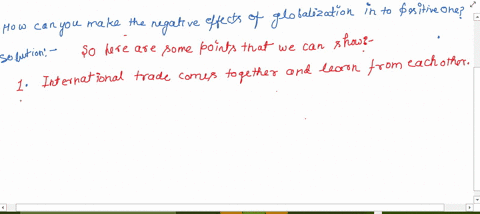 How can you make the negative effects of globalization in to positive one?
Solution:- So here are some points that we can show:-
1. International trade comes together and learn from each other.